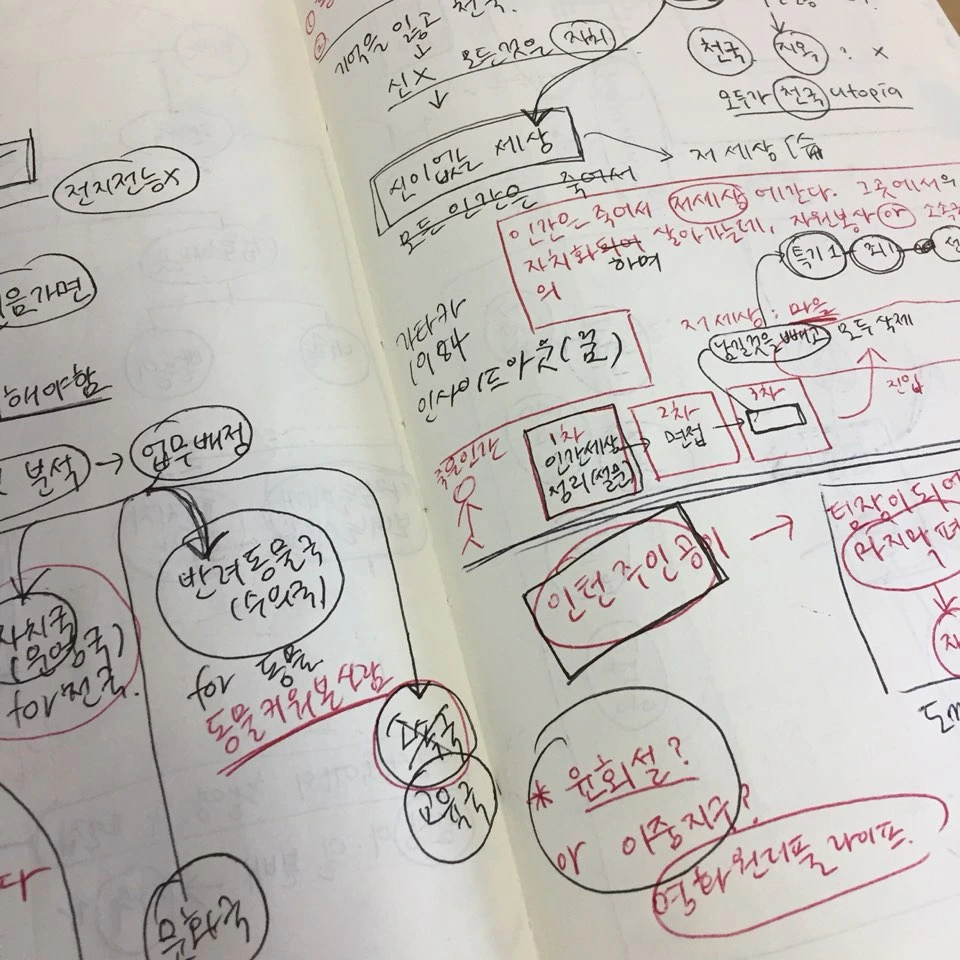 전지전능x
음가면
해야함
분석 → 업무배정
자치국
(운영국)
for 전국.
반려동물국
(수의국)
for 동물
동물키워본사람
교육국
문화국
다
기억을 잃고 천국.
신X 모든것은 자치
천국 지옥 : x
모두가 천국 utopia
신이없는 세상
저 세상
모든 인간은 죽어서
인간은 죽어서 저세상에간다. 그곳에서의
자치화되어 살아가는데, 자원봉사 or 소속
하며
의
특기1 죄1 선
가타카
1Q84
인사이드아웃(꿈)
저세상 : 마을
남길것을 빼고 모두삭제
진입
죽은인간
1차
인간세상
정리(설문)
2차
면접
3차
인턴 주인공이
팀장이되어
마지막 편
* 윤회설?
or 이중지구?
영화 원더풀 라이프.